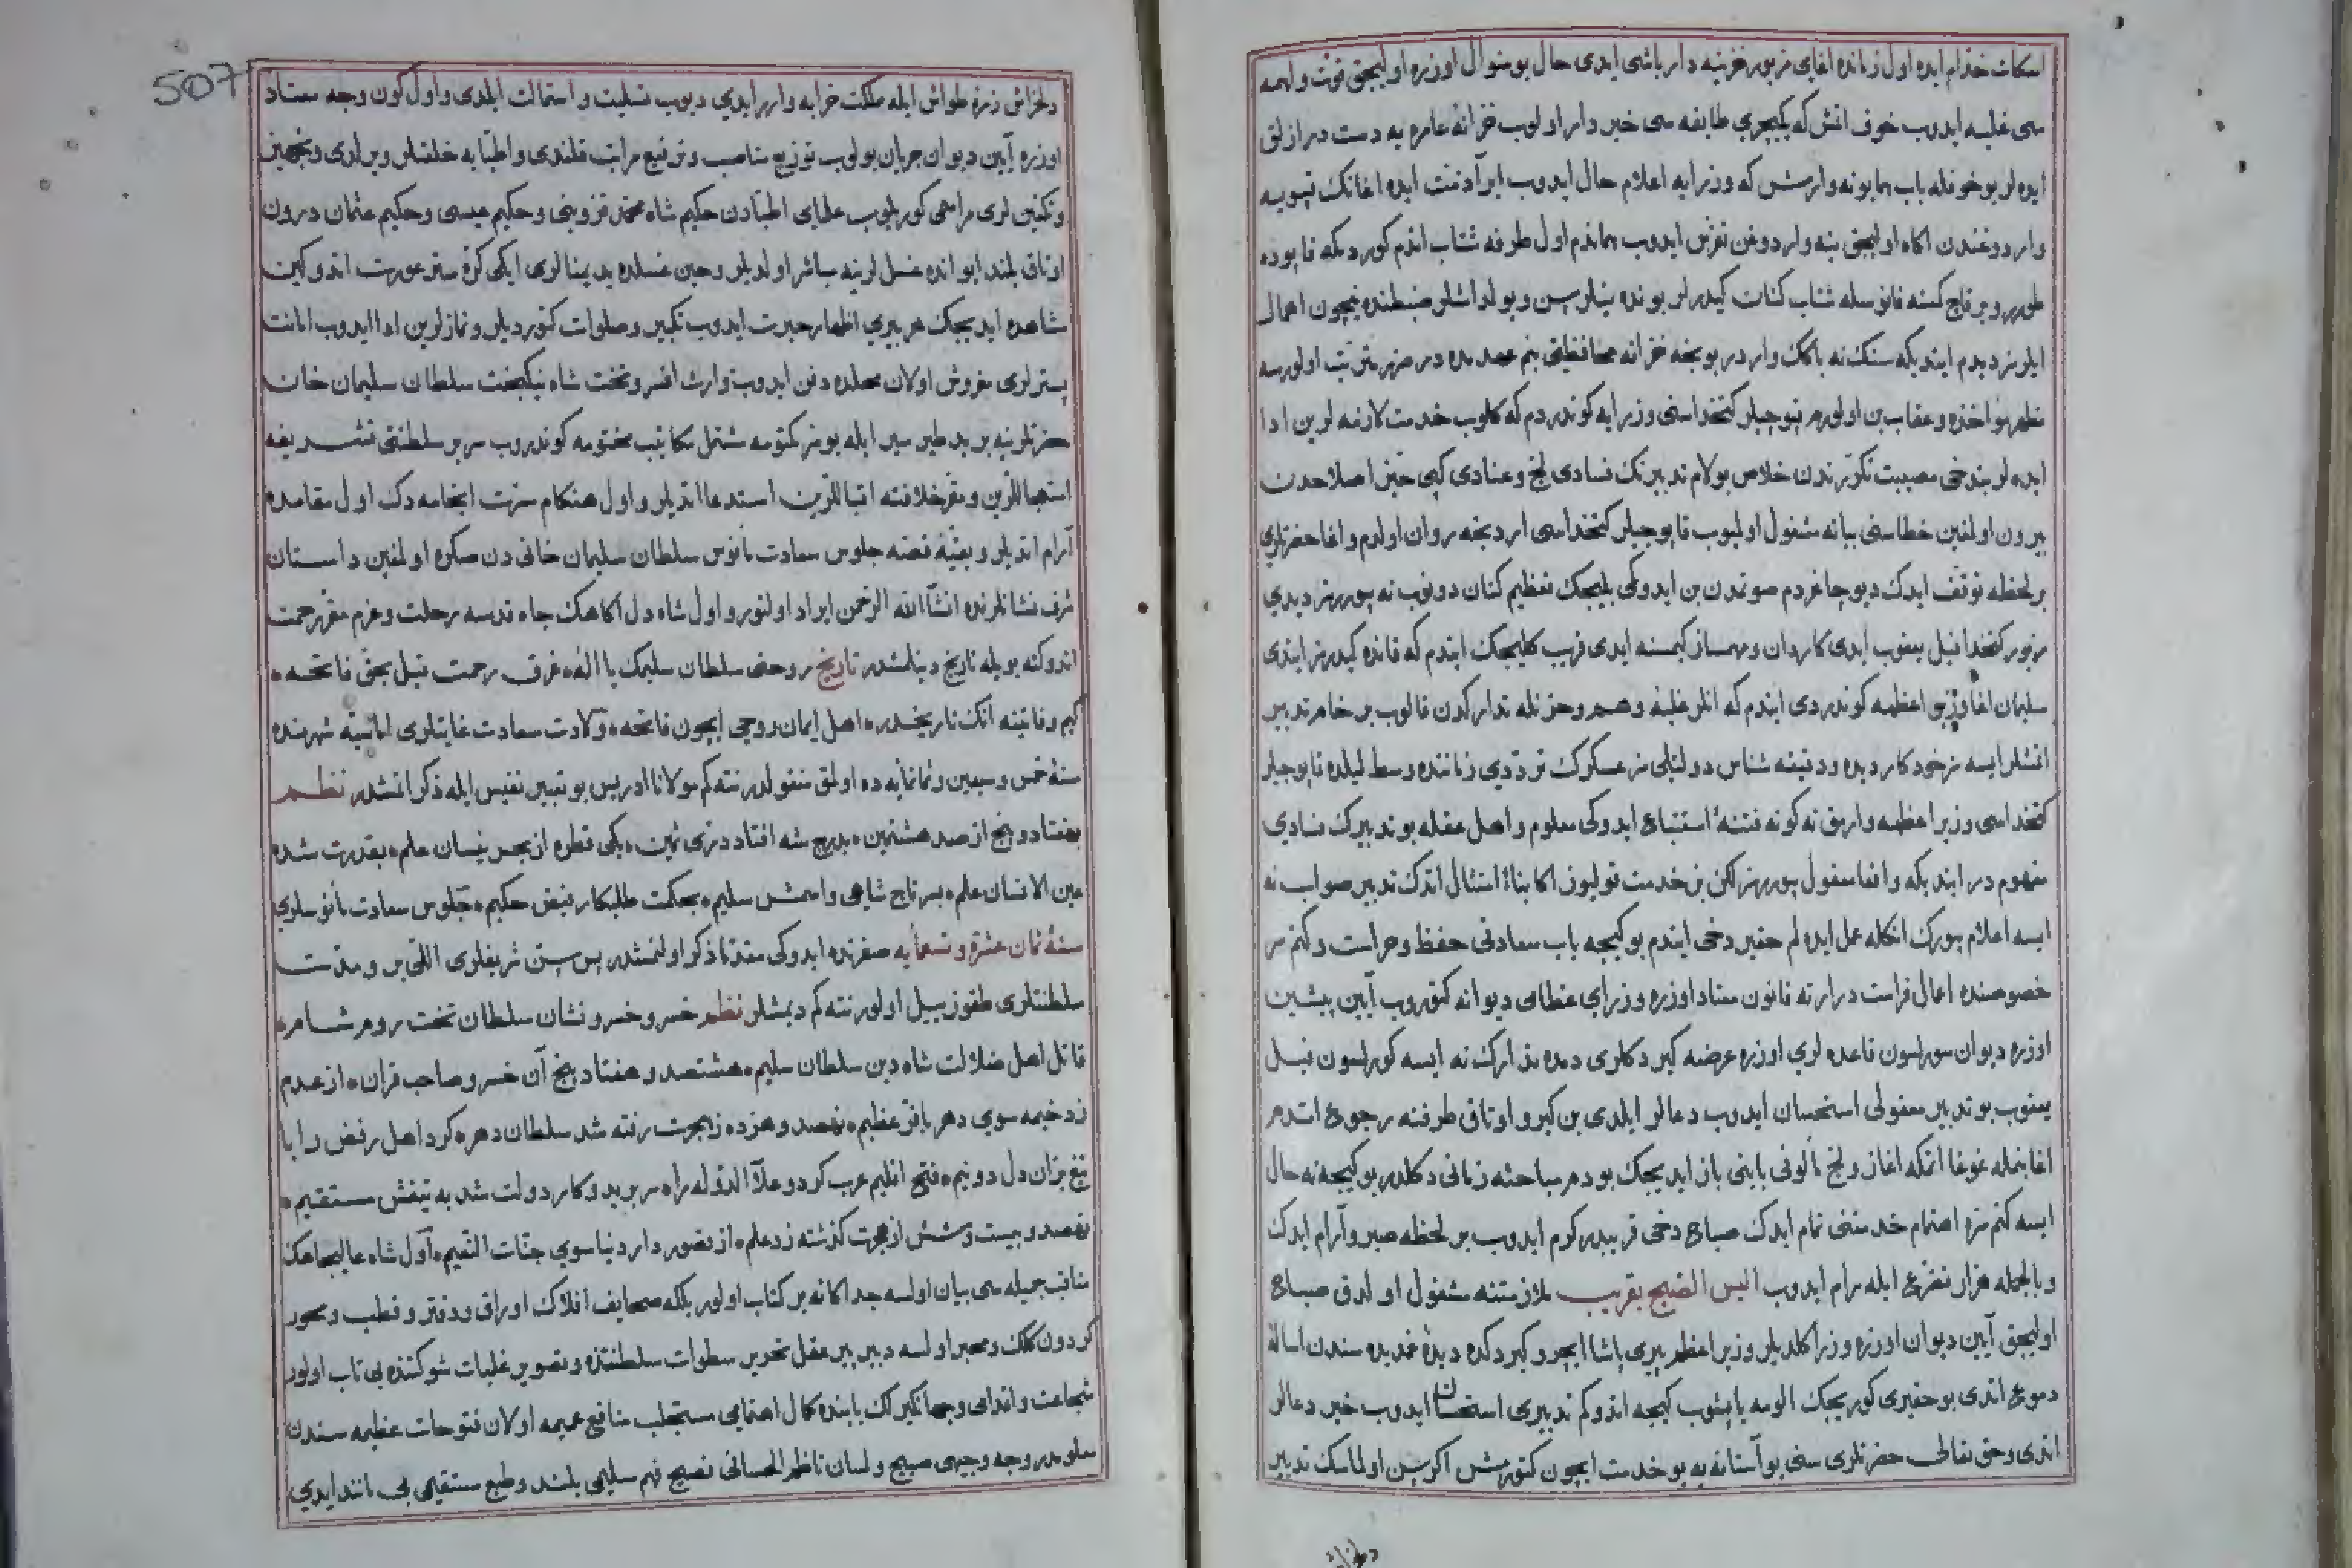 اسكات خدام ایده اول زمانده اغای مزبور خزینه دار باشی ایدی حال بو منوال اوزره اولیجق فوت واهمه
سی غلبه ایدوب خوف اتمش که یکیچری طایفه سی خبردار اولوب خزانهٔ عامره یه دست درازلق
ایده لر بو خوفله باب همایونه وارمش که وزرایه اعلام حال ایدوب ایده اغانك قپویه
واردوغندن اكاه اولیجق ینه واردوغن تفرس ایدوب هماندم اول طرفه شتاب اتدم كوردمكه قاپوده
طورر و بر قاچ كسنه فانوسله شتاب كنان كیدرلر بونده نیلرسن و یولداشلر ضبطنده نیچون اهمال
ایلرسز دیدم ایتدیكه سنك نه باكك واردر بو كیجه خزانه محافظه‌سی بنم عهدمده در
مظهر مؤاخذه و عقاب بن اولورم قپوجیلر كتخداسنی وزرایه كوندردم كه كلوب خدمت لازمه لرین ادا
ایده لر بندخی خلاص بولام تدبیرنك فسادی لج و عنادی كبی حیز اصلاحدن
بیرون اولمغین خطاسنی بیانه مشغول اولمیوب قاپوجیلر كتخداسی اردنجه روان اولدم و اغا حضرتلری
بر لحظه توقف ایدك دیو چاغردم صوتمدن بن ایدوكی بلیجك تعظیم كنان دونوب نه بیوررسز دیدی
مزبور كتخدا قیل یعقوب ایدی كاردان و مهمساز كیمسنه ایدی قریب كلیجك ایتدم كه قانده كیدرسز ایتدی
سلیمان اغا وزیر اعظمه كوندردی ایتدم كه انلر غلبهٔ وهم و حزنله تداركدن قالوب بر خام تدبیر
اتمشلر ایسه سز خود كاردیده و دقیقه شناس دولتلی سز عسكرك تردّدی زماننده وسط لیلده قاپوجیلر
كتخداسی وزیر اعظمه وارمق نه كونه فتنهٔ استتباع ایدوكی معلوم و اهل عقله بو تدبیرك فسادی
مفهوم در ایتدیكه واقعا معقول بیوررسز لكن بن خدمت قولیوز اكا بناءً امتثال اتدك تدبیر صواب نه
ایسه اعلام بیورك انكله عمل ایده لم حقیر دخی ایتدم بو كیجه باب سعادتی حفظ و حراست و كتم سر
خصوصنده اعمال فراست در ارته قانون معتاد اوزره وزرای عظامی دیوانه كتوروب آیین پیشین
اوزره دیوان سورلسون قاعده لری اوزره عرضه كیردكلری دمده تدارك نه ایسه كورلسون قیل
یعقوب بو تدبیر معقولی استحسان ایدوب دعالر ایلدی بن كیرو اوتاق طرفنه رجوع اتدم
اغا بنمله غوغا اتمكه اغاز و لج مألوفی بابنی باز ایدیجك بو دم مباحثه زمانی دكلدر بو كیجه نه حال
ایسه كتم سره اهتمام خدمتنی تمام ایدك صباح دخی قریبدر كورم ایدوب بر لحظه صبر و آرام ایدك
و بالجمله هزار تضرع ایله مرام ایدوب الیس الصبح بقریب ملازمتنه مشغول اولدق صباح
اولیجق آیین دیوان اوزره وزرا كلدیلر وزیر اعظم پیری پاشا ایچرو كیردكده دیدهٔ غمدیده سندن اسالهٔ
دموع اتدی بو حقیری كوریجك الومه یاپشوب كیجه اتدوكم تدبیری استحسان ایدوب خیر دعالر
اتدی و حق تعالی حضرتلری سنی بو آستانه یه بو خدمت ایچون كتورمش اكر سن اولماسك تدبیر
507
دلخراش زمرهٔ طواش ایله مملكت خرابه وارر ایدی دیوب تسلیت و استمالت ایلدی و اول كون وجه معتاد
اوزره آیین دیوان جریان بولوب توزیع مناصب و ترفیع مراتب قلندی و اطبّایه خلعتلر ویرلدی و تجهیز
و تكفین لری مراسمی كوریلوب علمای اطبادن حكیم شاه محمد قزوینی و حكیم عیسی و حكیم عثمان درون
اوتاق بلند ایوانده غسل لرینه مباشر اولدیلر و حین غسلده ید یمنالری ایكی كرّه ستر عورت اتدوكین
مشاهده ایدیجك هر بیری اظهار حیرت ایدوب تكبیر و صلوات كتوردیلر و نمازلرین ادا ایدوب امانت
بسترلری مفروش اولان محلده دفن ایدوب وارث افسر و تخت شاه نیكبخت سلطان سلیمان خان
حضرتلرینه برید طیر سیر ایله بو سرّ مكتومه مشتمل مكاتیب مختومه كوندروب سریر سلطنتی تشریفه
استعجاللرین و مقر خلافته اقباللرین استدعا اتدیلر و اول هنكام انجامه دك اول مقامده
آرام اتدیلر و بقیّهٔ قصه جلوس سعادت مأنوس سلطان سلیمان خانی دن صكره اولمغین داستان
شرف نشانلرنده انشاءالله الرحمن ایراد اولنور و اول شاه دل اكاهك جاه قدسه رحلت و عزم مقر رحمت
اتدوكنه بویله تاریخ دینلمشدر تاریخ روحنی سلطان سلیمك یا اله غرق رحمت قیل بحق فاتحه
كیم وفاتینه انك تاریخیدر اهل ایمان روحی ایچون فاتحه ولادت سعادت غایتلری اماسیه شهرنده
سنهٔ خمس و سبعین و ثمانمایه ده اولمق منقولدر نته كم مولانا ادریس بو تعیین نفیس ایله ذكر اتمشدر نظم
بهفتاد و پنج از صد هشتمین بدرج شه افتاد درّی ثمین یكی قطره از بحر نیسان علم بقدرت شده
عین الانسان علم بسر تاج شاهی و اسمش سلیم بحكمت طلبكار فیض حكیم جلوس سعادت مأنوسلری
سنهٔ ثمان عشرة و تسعمأیه صفرنده ایدوكی مقدّما ذكر اولنمشدر پس سنّ شریفلری اللی بر و مدت
سلطنتلری طقوز ییل اولور نته كم دیمشلر نظم خسرو خسرو نشان سلطان تخت روم و شام
قاتل اهل ضلالت شاه دین سلطان سلیم هشتصد و هفتاد پنج آن خسرو صاحب قران از عدم
زد خیمه سوی دهر با فرّ عظیم نهصد و هژده ز هجرت رفته شد سلطان دهر كرد اهل رفض را با
تیغ بران دل دو نیم فتح اقلیم عرب كرد و علاءالدوله را سر برید و كار دولت شد به تیغش مستقیم
نهصد و بیست و شش از هجرت كذشته زد علم از قصور دار دنیا سوی جنّات النعیم اول شاه عالیجاهك
مناقب جمیله سی بیان اولسه جداكانه بر كتاب اولور بلكه صحایف افلاك اوراق و دفتر و قطب و محور
كردون كلك و محبر اولسه دبیر پیر عقل تحریر سطوات سلطنتنده و تصویر غلبات شوكتنده بی تاب اولور
شجاعت و اقدامی و جهانكیرلك بابنده كمال اهتمامی مستجلب منافع عمیمه اولان فتوحات عظیمه سندن
معلومدر وجه وجیهی صبیح و لسان ناظم الحسانی فصیح فهم سلیمی بلند و طبع مستقیمی بی مانند ایدی